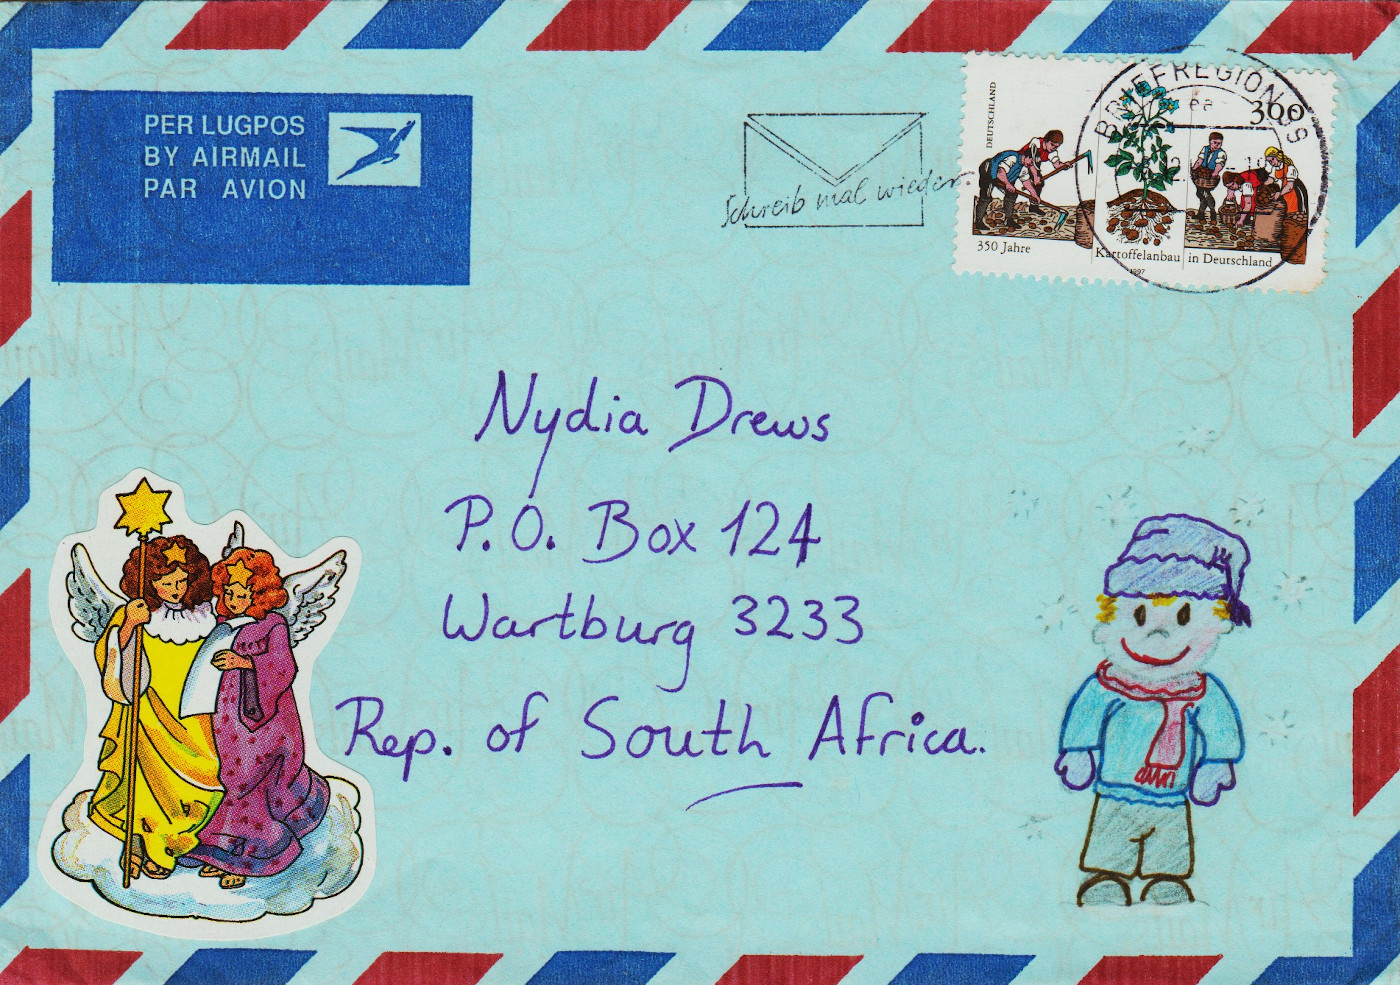 PER LUGPOS
BY AIRMAIL
PAR AVION
Schreib mal wieder
DEUTSCHLAND
360
350 Jahre Kartoffelanbau in Deutschland
1997
BRIEFREGION 99
Nydia Drews
P.O. Box 124
Wartburg 3233
Rep. of South Africa.